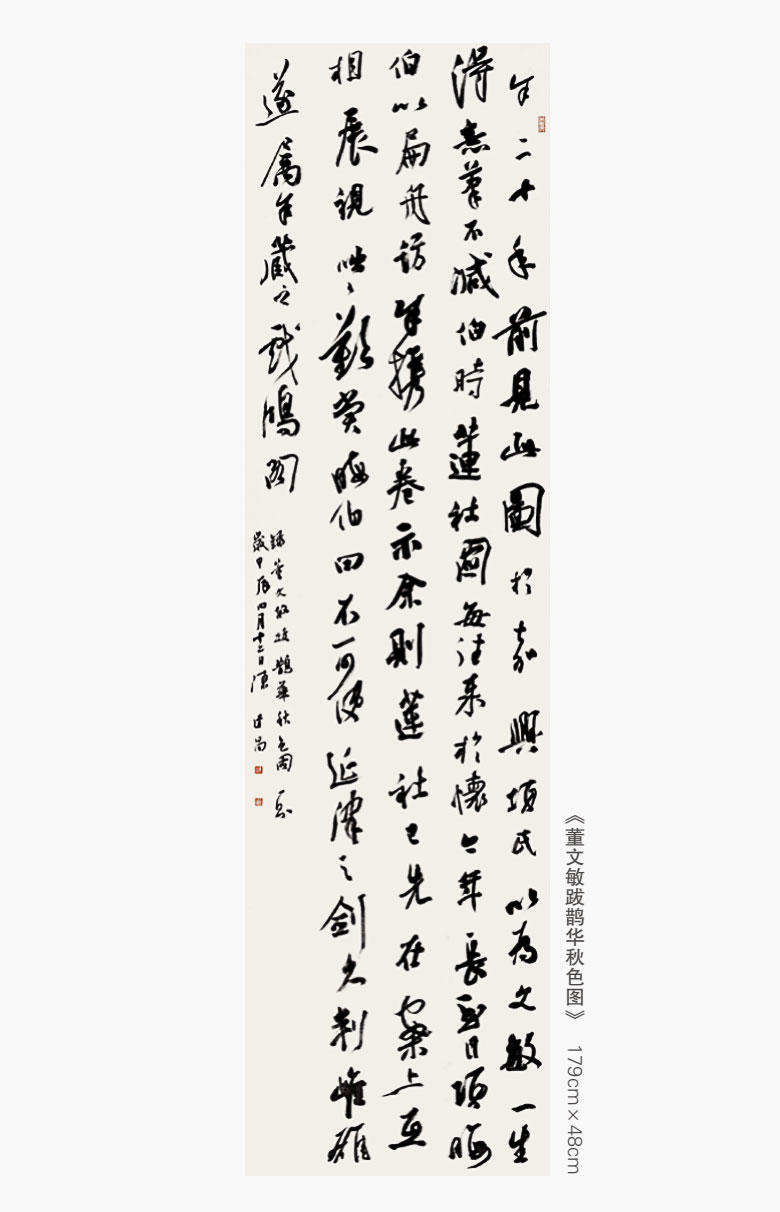 余二十年前見此圖於嘉興項氏以為文敏一生
得意筆不減伯時蓮社圖每往來於懷今年長至日項晦
伯以扁舟訪余攜此卷示余則蓮社已先在案上互
相展視咄〻歎賞晦伯曰不可使延津之劍久判雌雄
遂屬余藏之戲鴻閣
錄董文敏跋鵲華秋色圖
歲甲辰四月十二日
《董文敏跋鹊华秋色图》 179cm×48cm